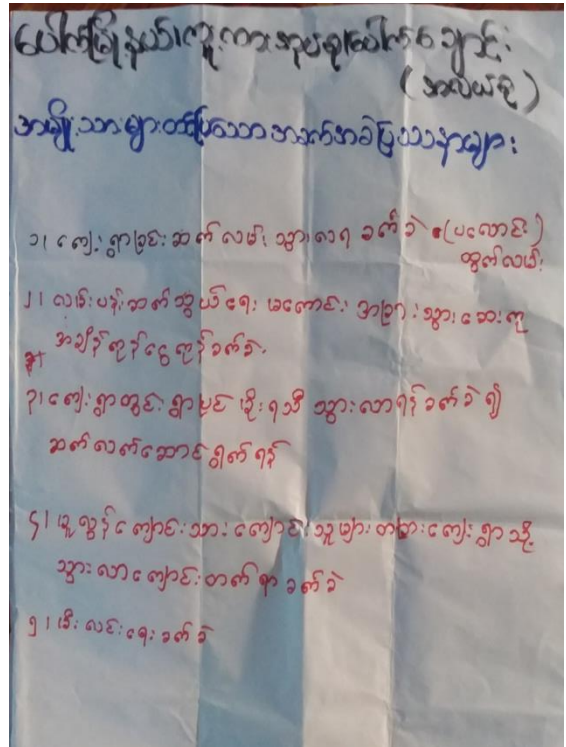 ပေါက်မြို့နယ်၊ကူးကားအုပ်စု၊ပေါက်ချောင်း
(အလယ်စု)
အမျိုးသားများတင်ပြသောအခက်အခဲပြဿနာများ
၁၊ ကျေးရွာချင်းဆက်လမ်း သွားလာရ ခက်ခဲ (ပလောင်း)
ထွက်လမ်း
၂၊ လမ်းပန်းဆက်သွယ်ရေး မကောင်း အခြားသွားဆေးကု
အချိန်ကုန်ငွေကုန်ခက်ခဲ.
၃၊ ကျေးရွာတွင်း ရွာပွင် မိုးရာသီ သွားလာရန်ခက်ခဲ၍
ဆက်လက်ဆောင်ရွက်ရန်
၄၊ မူလွန်ကျောင်းသား ကျောင်းသူများ တခြားကျေးရွာသို့
သွားလာကျောင်းတက်ရာ ခက်ခဲ
၅၊ မီးလင်းရေး ခက်ခဲ